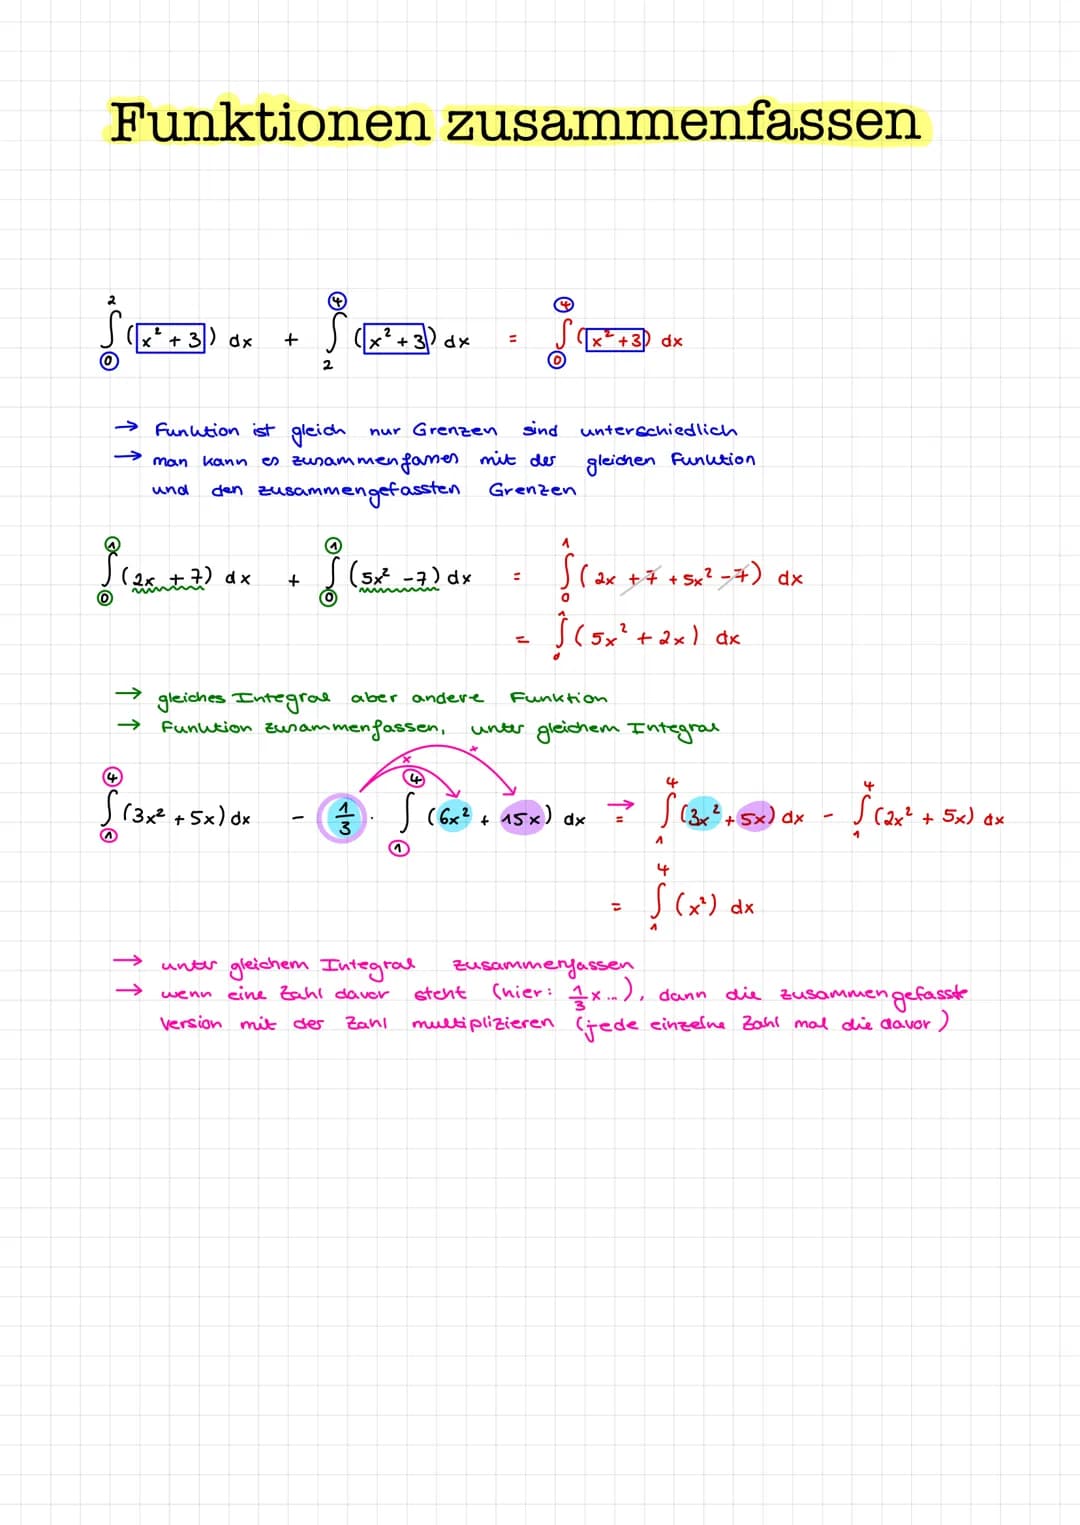 Funktionen zusammenfassen
2∫0 (x² + 3) dx + 4∫2 (x² + 3) dx = 4∫0 (x² + 3) dx
→ Funktion ist gleich nur Grenzen sind unterschiedlich
→ man kann es zusammenfassen mit der gleichen Funktion
und den zusammengefassten Grenzen
1∫0 (2x + 7) dx + 1∫0 (5x² - 7) dx = 1∫0 (2x + 7 + 5x² - 7) dx
= 1∫0 (5x² + 2x) dx
→ gleiches Integral aber andere Funktion
→ Funktion zusammenfassen, unter gleichem Integral
4∫1 (3x² + 5x) dx - 1/3 · 4∫1 (6x² + 15x) dx → = 4∫1 (3x² + 5x) dx - 4∫1 (2x² + 5x) dx
= 4∫1 (x²) dx
→ unter gleichem Integral zusammenfassen
→ wenn eine Zahl davor steht (hier: 1/3 x ...), dann die zusammengefasste
Version mit der Zahl multiplizieren (jede einzelne Zahl mal die davor)